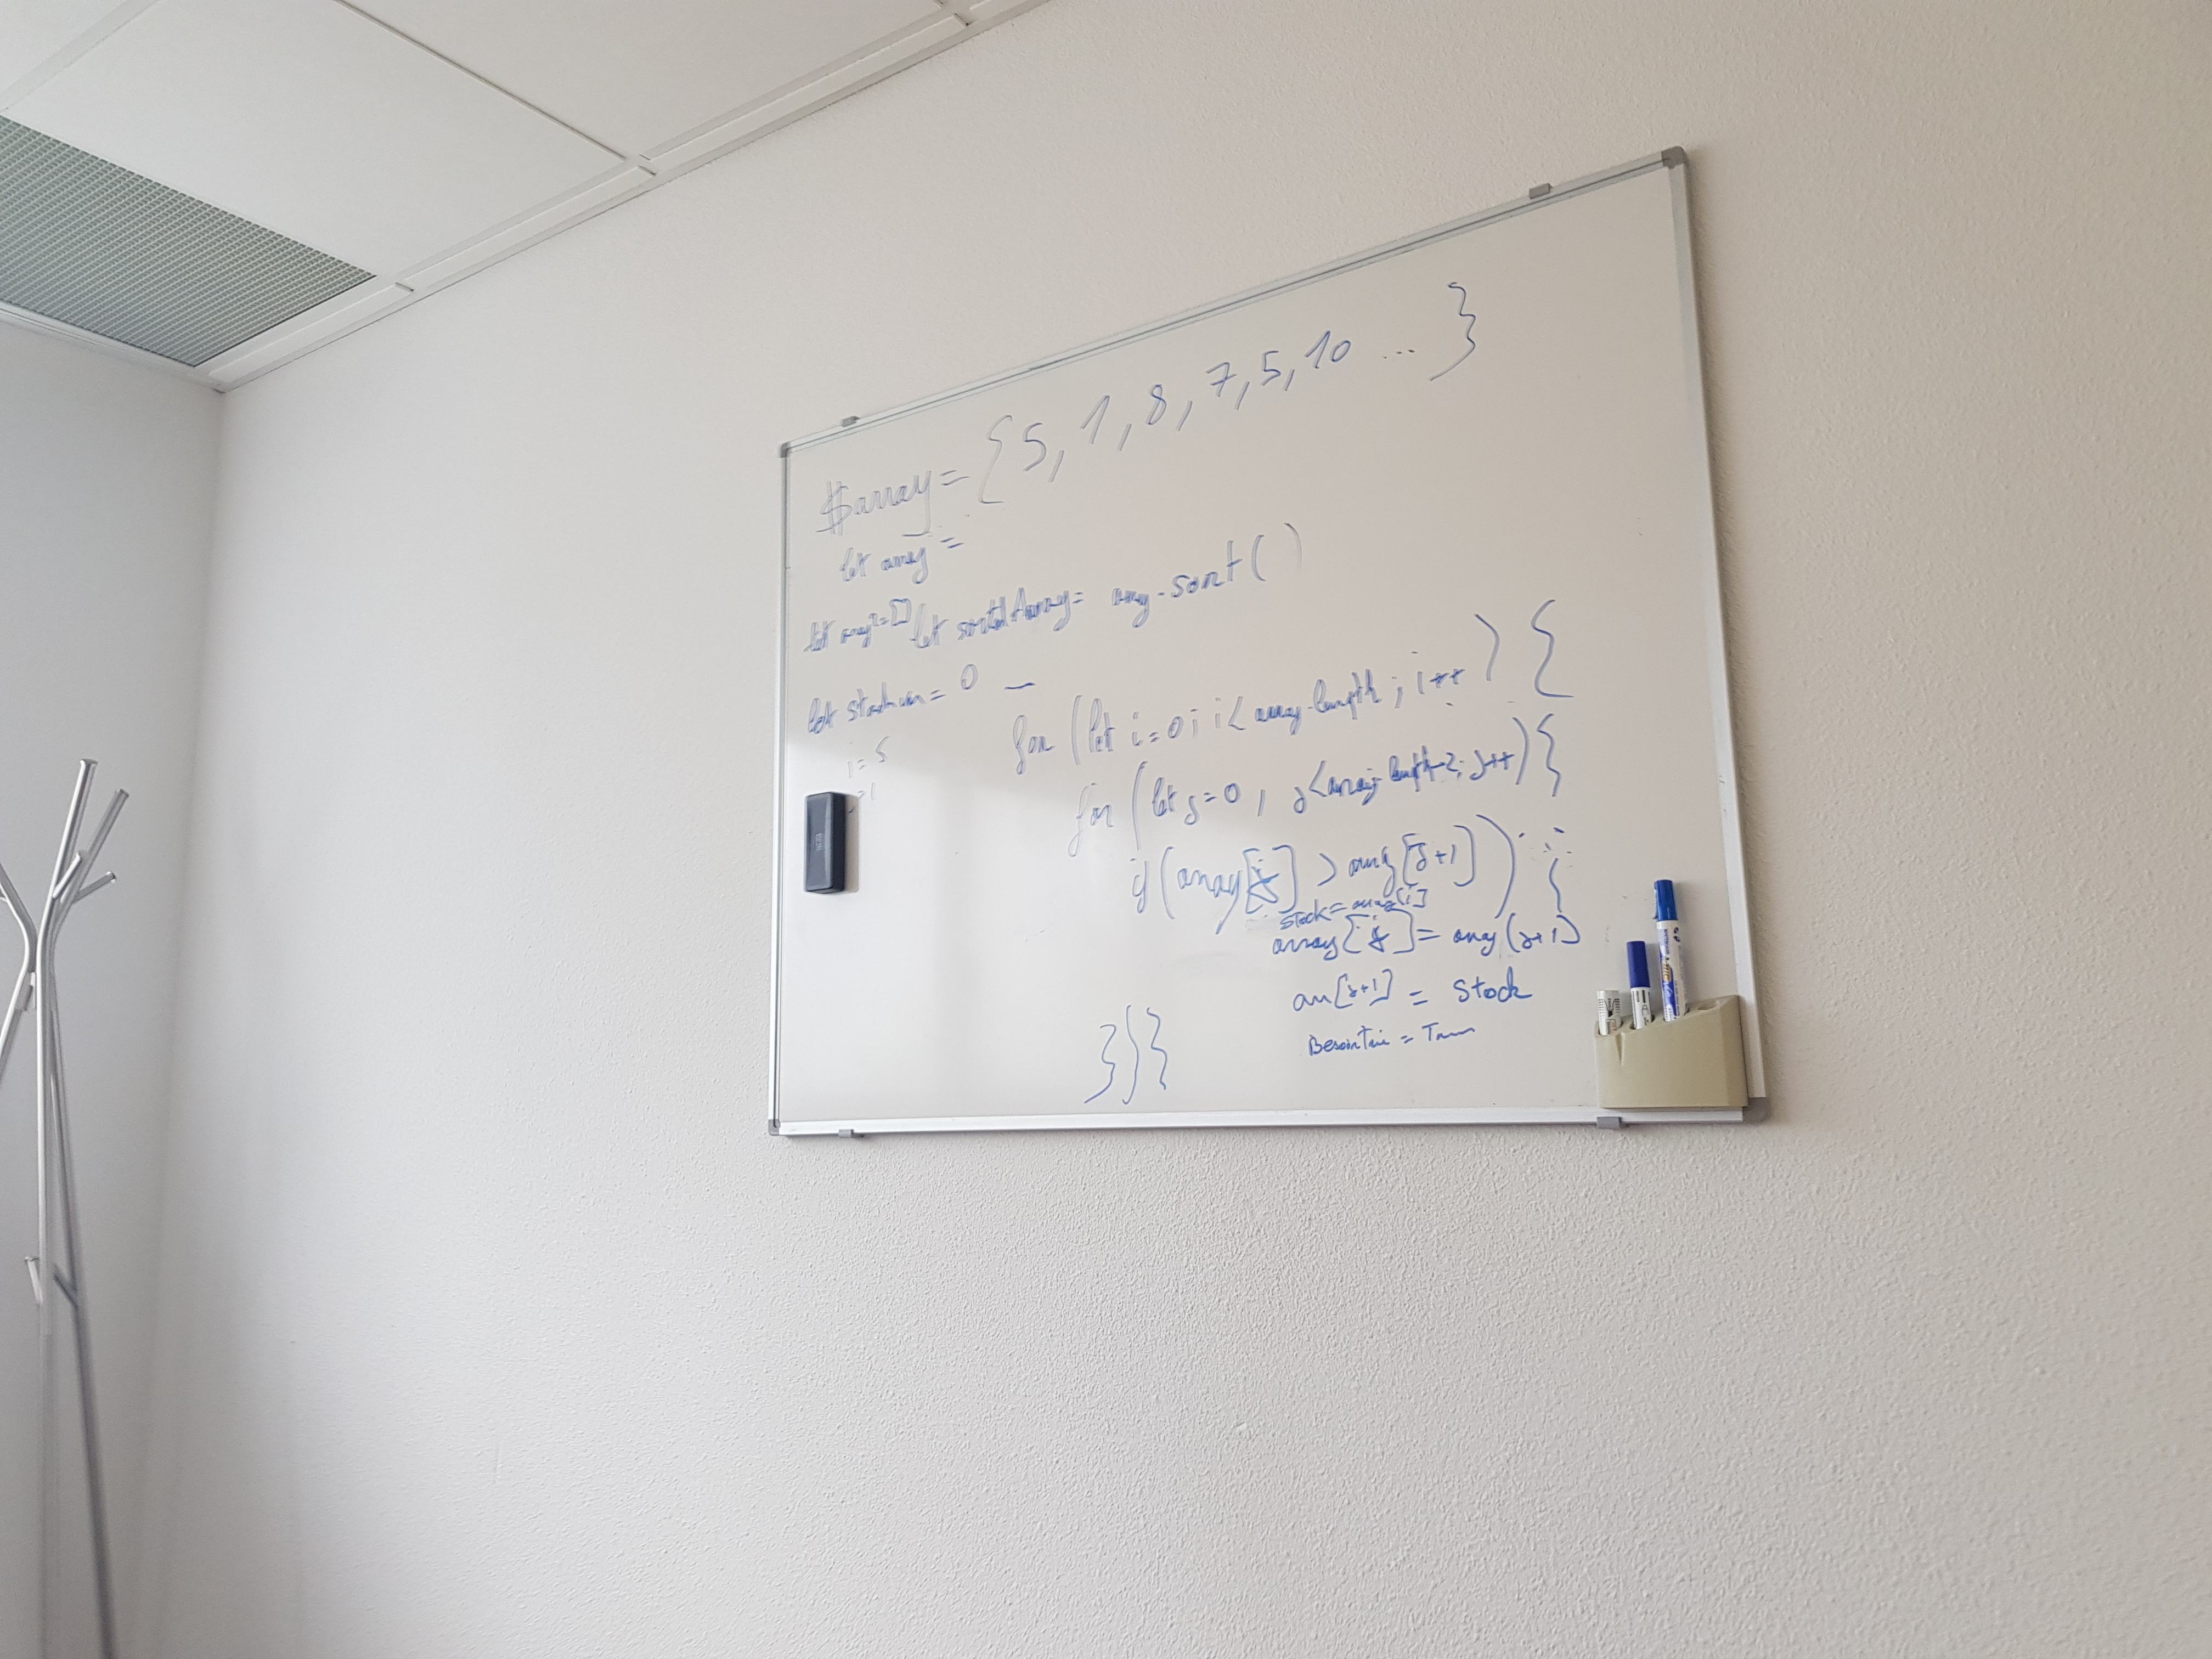 $array = { 5, 1, 8, 7, 5, 10 ... }
let array =
let array2 = [] let sortedArray = array.sort()
let = 0
for (let i = 0; i < array.length; i++) {
i = 5
for (let j = 0, j < array.length-2; j++) {
if (array[j] > array[j+1]) {
stock = array[i]
array[j] = array(j+1)
arr[j+1] = stock
}}}